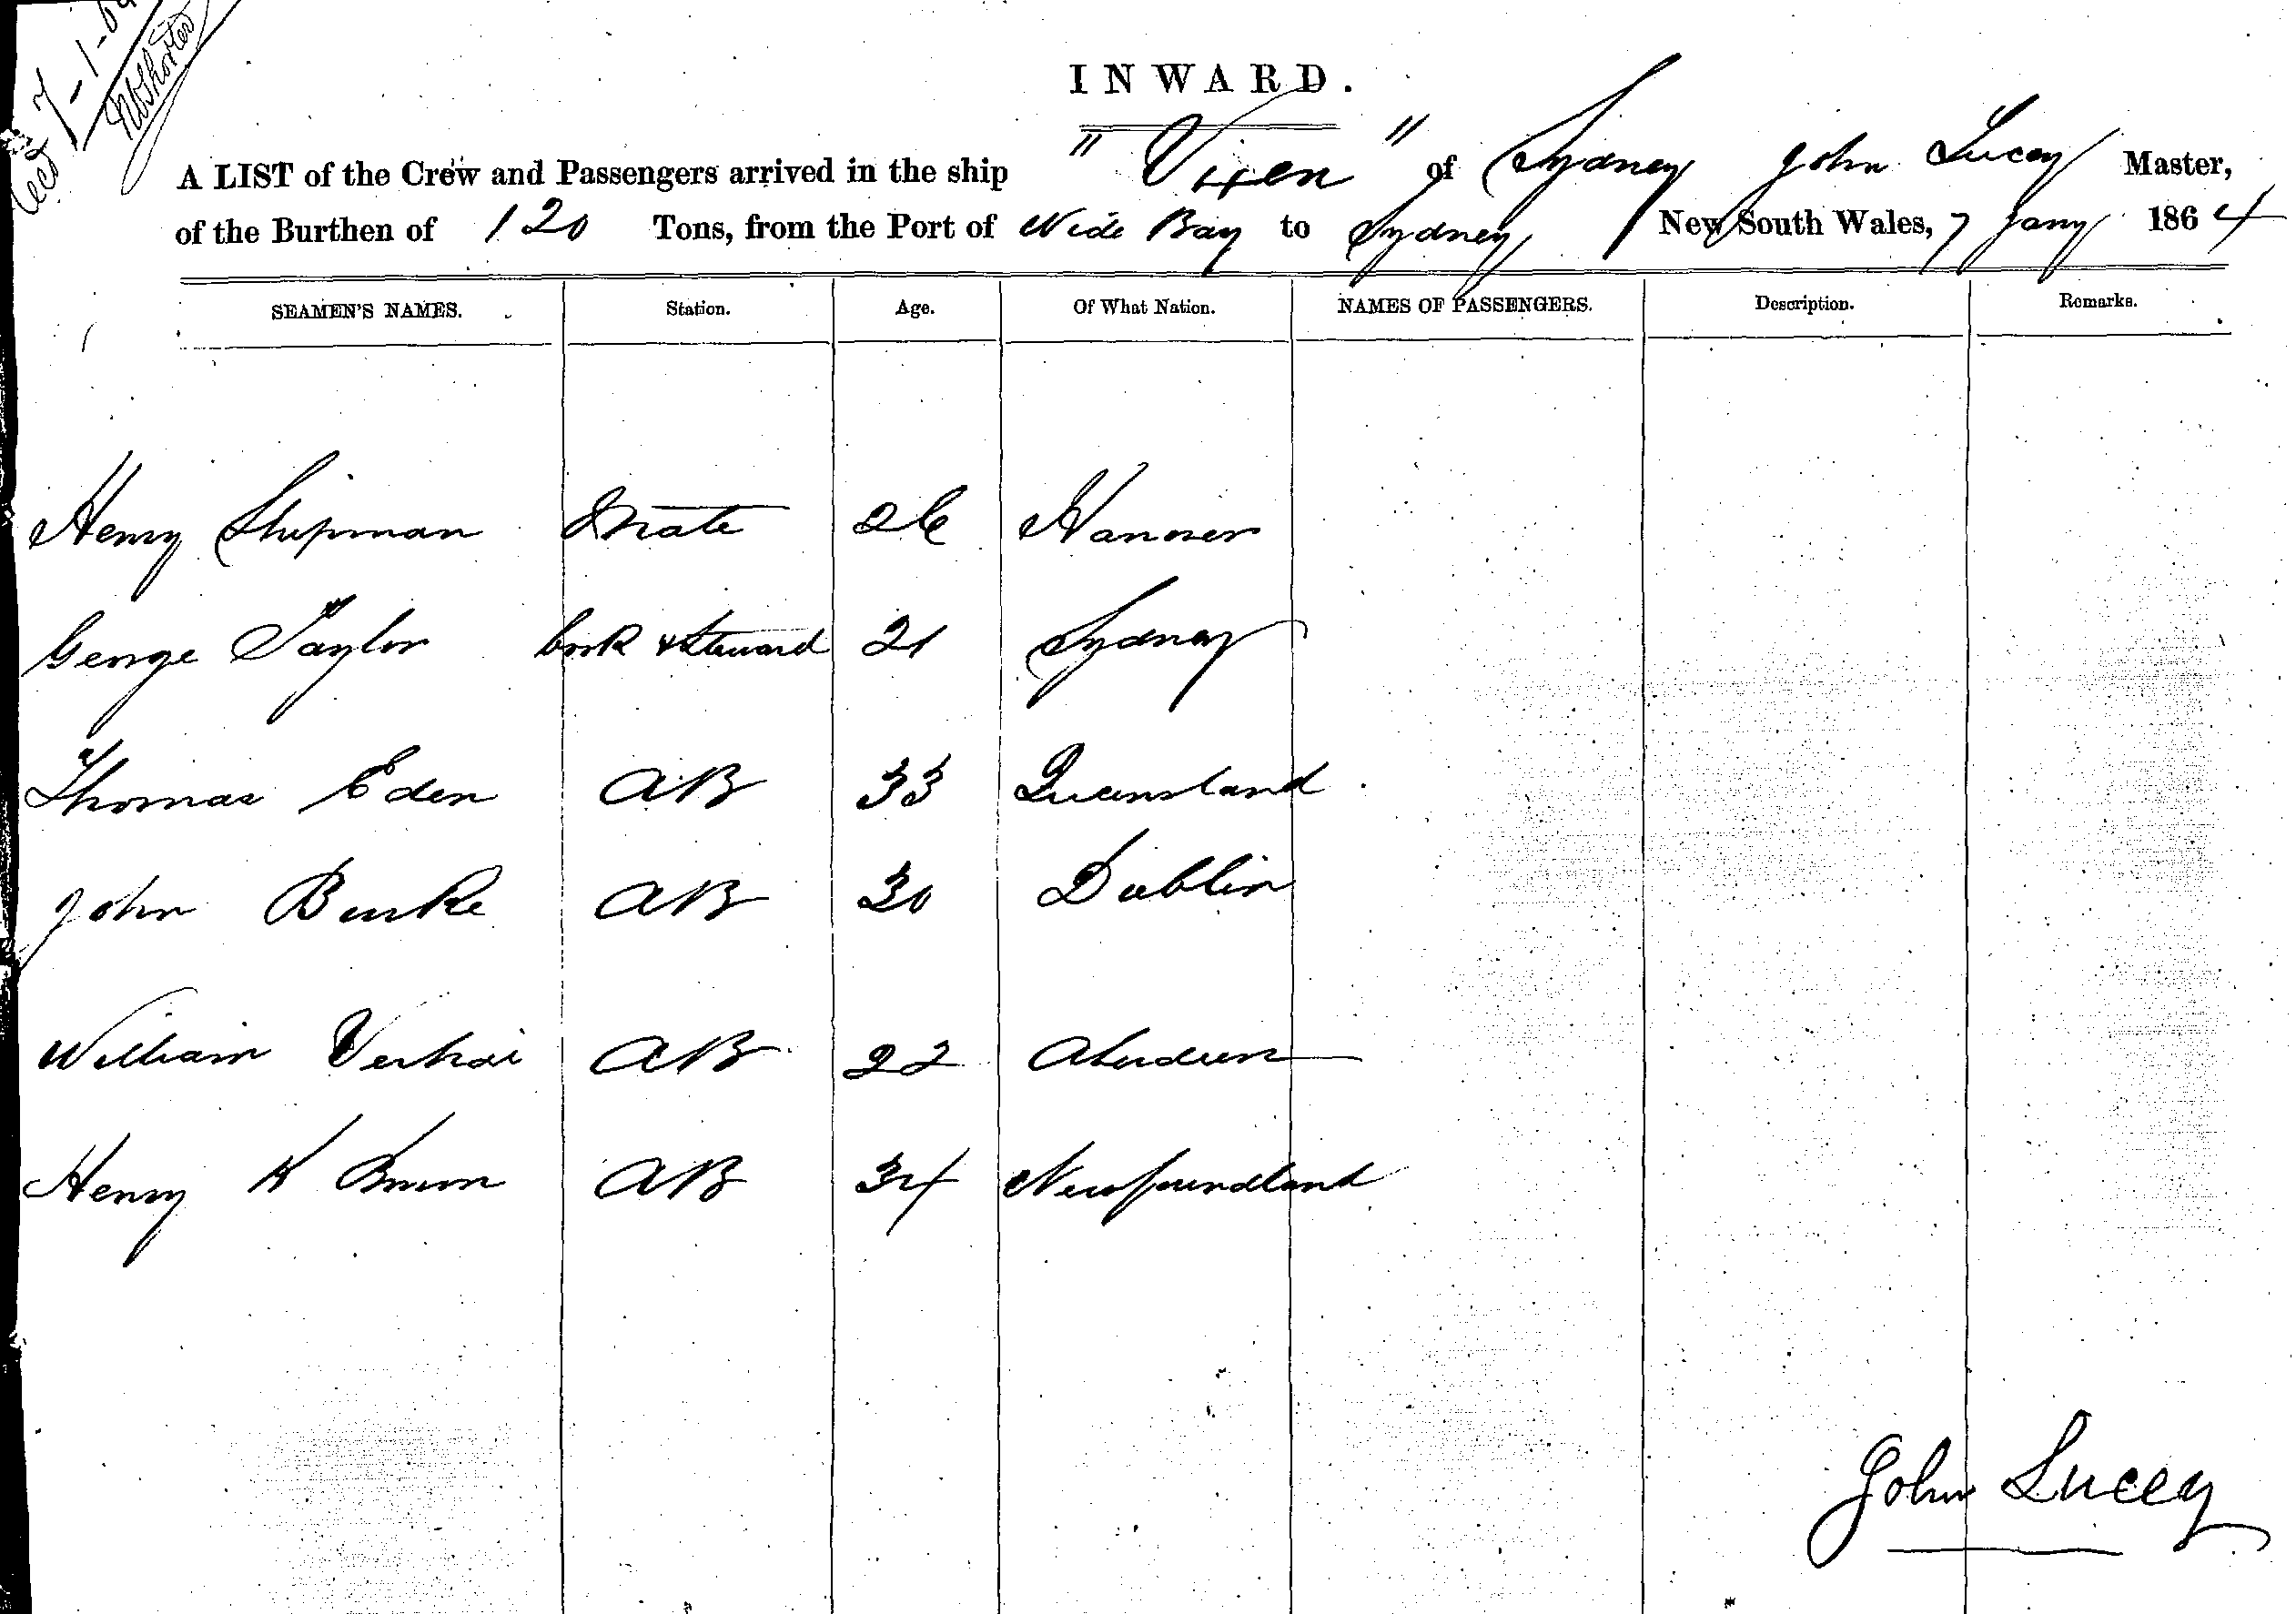 7-1-64
INWARD.
A LIST of the Crew and Passengers arrived in the ship "Vixen" of Sydney John Lucey Master,
of the Burthen of 120 Tons, from the Port of Wide Bay to Sydney New South Wales, 7 Jany 1864
SEAMEN'S NAMES. Station. Age. Of What Nation. NAMES OF PASSENGERS. Description. Remarks.
Henry Shipman Mate 26 Hanover
George Taylor Cook & Steward 21 Sydney
Thomas Eden AB 33 Queensland
John Burke AB 30 Dublin
William AB 22 Aberdeen
Henry K Brown AB 34 Newfoundland
John Lucey